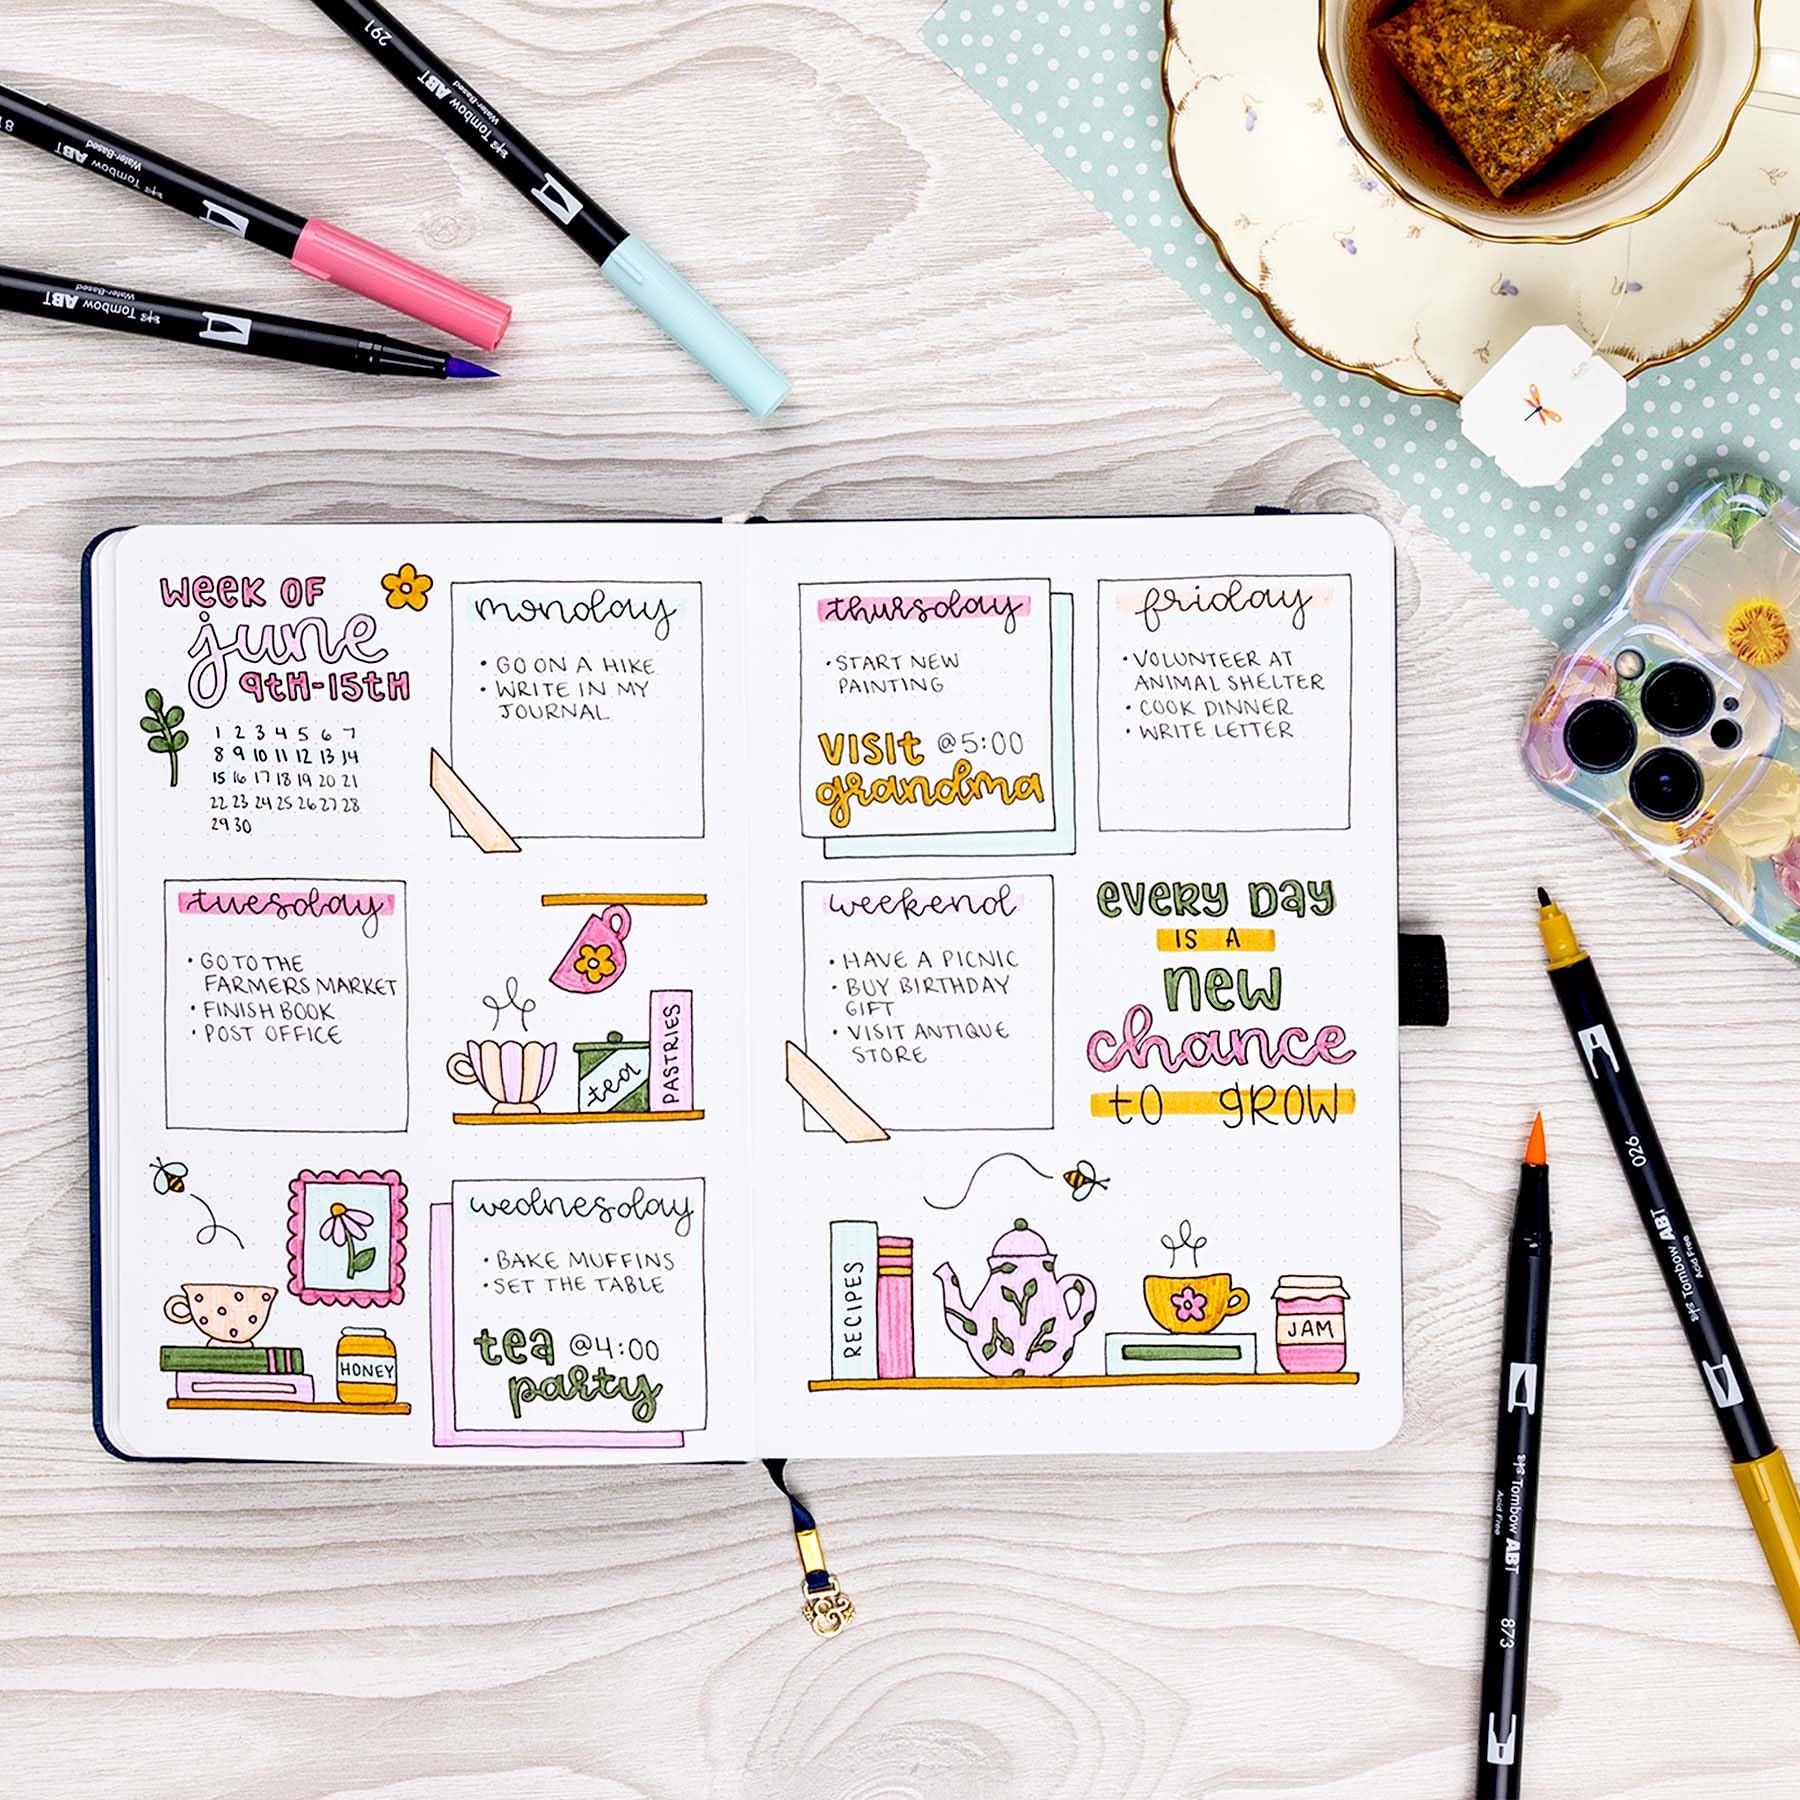 291
Tombow ABT
Water-Based
Tombow ABT
Water-Based
Tombow ABT
Water-Based
WEEK OF
june
9TH-15TH
1 2 3 4 5 6 7
8 9 10 11 12 13 14
15 16 17 18 19 20 21
22 23 24 25 26 27 28
29 30
monday
• GO ON A HIKE
• WRITE IN MY
JOURNAL
tuesday
• GO TO THE
FARMERS MARKET
• FINISH BOOK
• POST OFFICE
tea
PASTRIES
HONEY
wednesday
• BAKE MUFFINS
• SET THE TABLE
tea @4:00
party
thursday
• START NEW
PAINTING
VISIT @5:00
grandma
friday
• VOLUNTEER AT
ANIMAL SHELTER
• COOK DINNER
• WRITE LETTER
weekend
• HAVE A PICNIC
• BUY BIRTHDAY
GIFT
• VISIT ANTIQUE
STORE
EVERY DAY
IS A
NEW
chance
to GROW
RECIPES
JAM
026
Tombow ABT
Acid Free
Tombow ABT
Acid Free
873